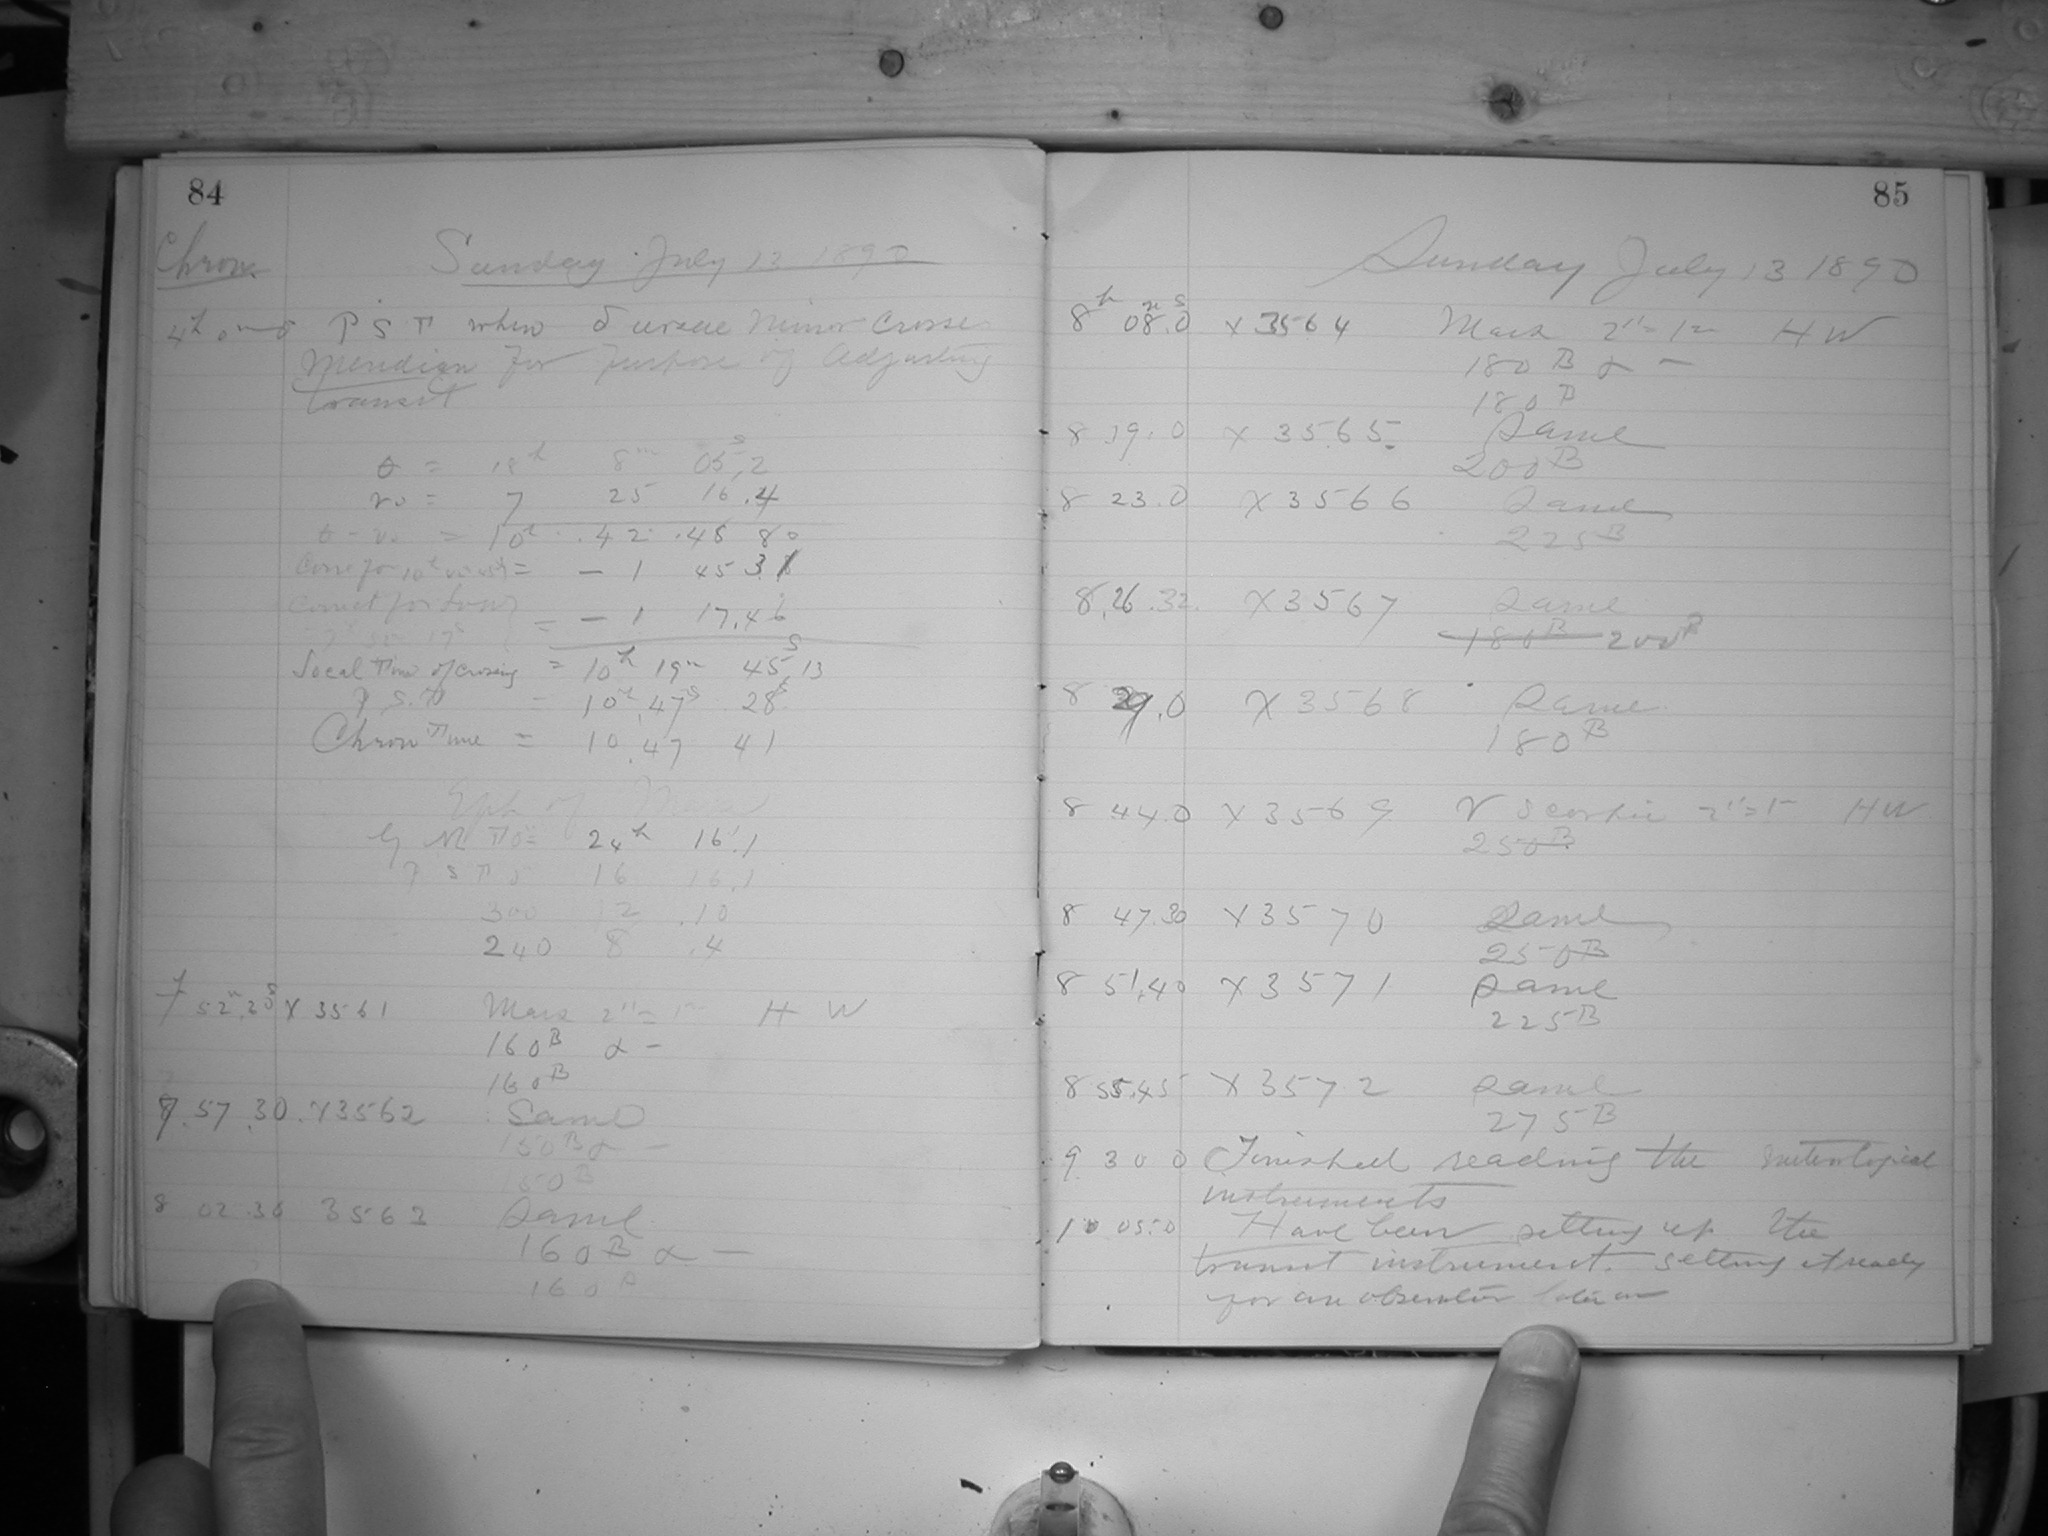 84
Chron
Sunday July 13 1890
4h 0m 0 P S T when δ ursae minor Crosses
Meridian For Purpose of Adjusting
transit
θ = 18h 8m 05s.2
vo = 7 25 16.4
θ - vo = 10h 42 48 80
Corr for = - 1 45 31
Correct for Long
= - 1 17.46
Local Time of Crossing = 10h 19m 45s.13
P S T = 10h 47 28s
Chron Time = 10.47 41
Eph of Mars
G M T 0 = 24h 16.1
P S T 0 16 16.1
300 12 .10
240 8 .4
7 52m.30s X 3561 Mars 2"=1- H W
160B α -
160B
7.57.30. X3562 Same
150B α -
150B
8 02.30 3563 Same
160B α -
160B
85
Sunday July 13 1890
8h 08m.0s X 3564 Mars 2"=1- H W
180B α -
180B
8 19.0 X 3565 Same
200B
8 23.0 X 3566 Same
225B
8.26.32. X 3567 Same
180B 200B
8 29.0 X 3568 Same
180B
8 44.0 X 3569 ν Scorpii 2"=1- H W
250B
8 47.30 X 3570 Same
250B
8 51.40 X 3571 Same
225B
8 55.45 X 3572 Same
275B
9 30 0 Finished reading the meterological
instruments
10 05.0 Have been setting up the
transit instrument. Getting it ready
for an observation